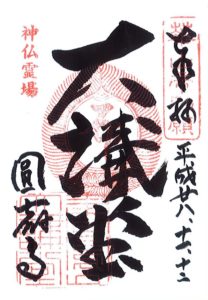 奉拝
平成廿八・十一・十二
大講堂
神仏霊場
圓教寺